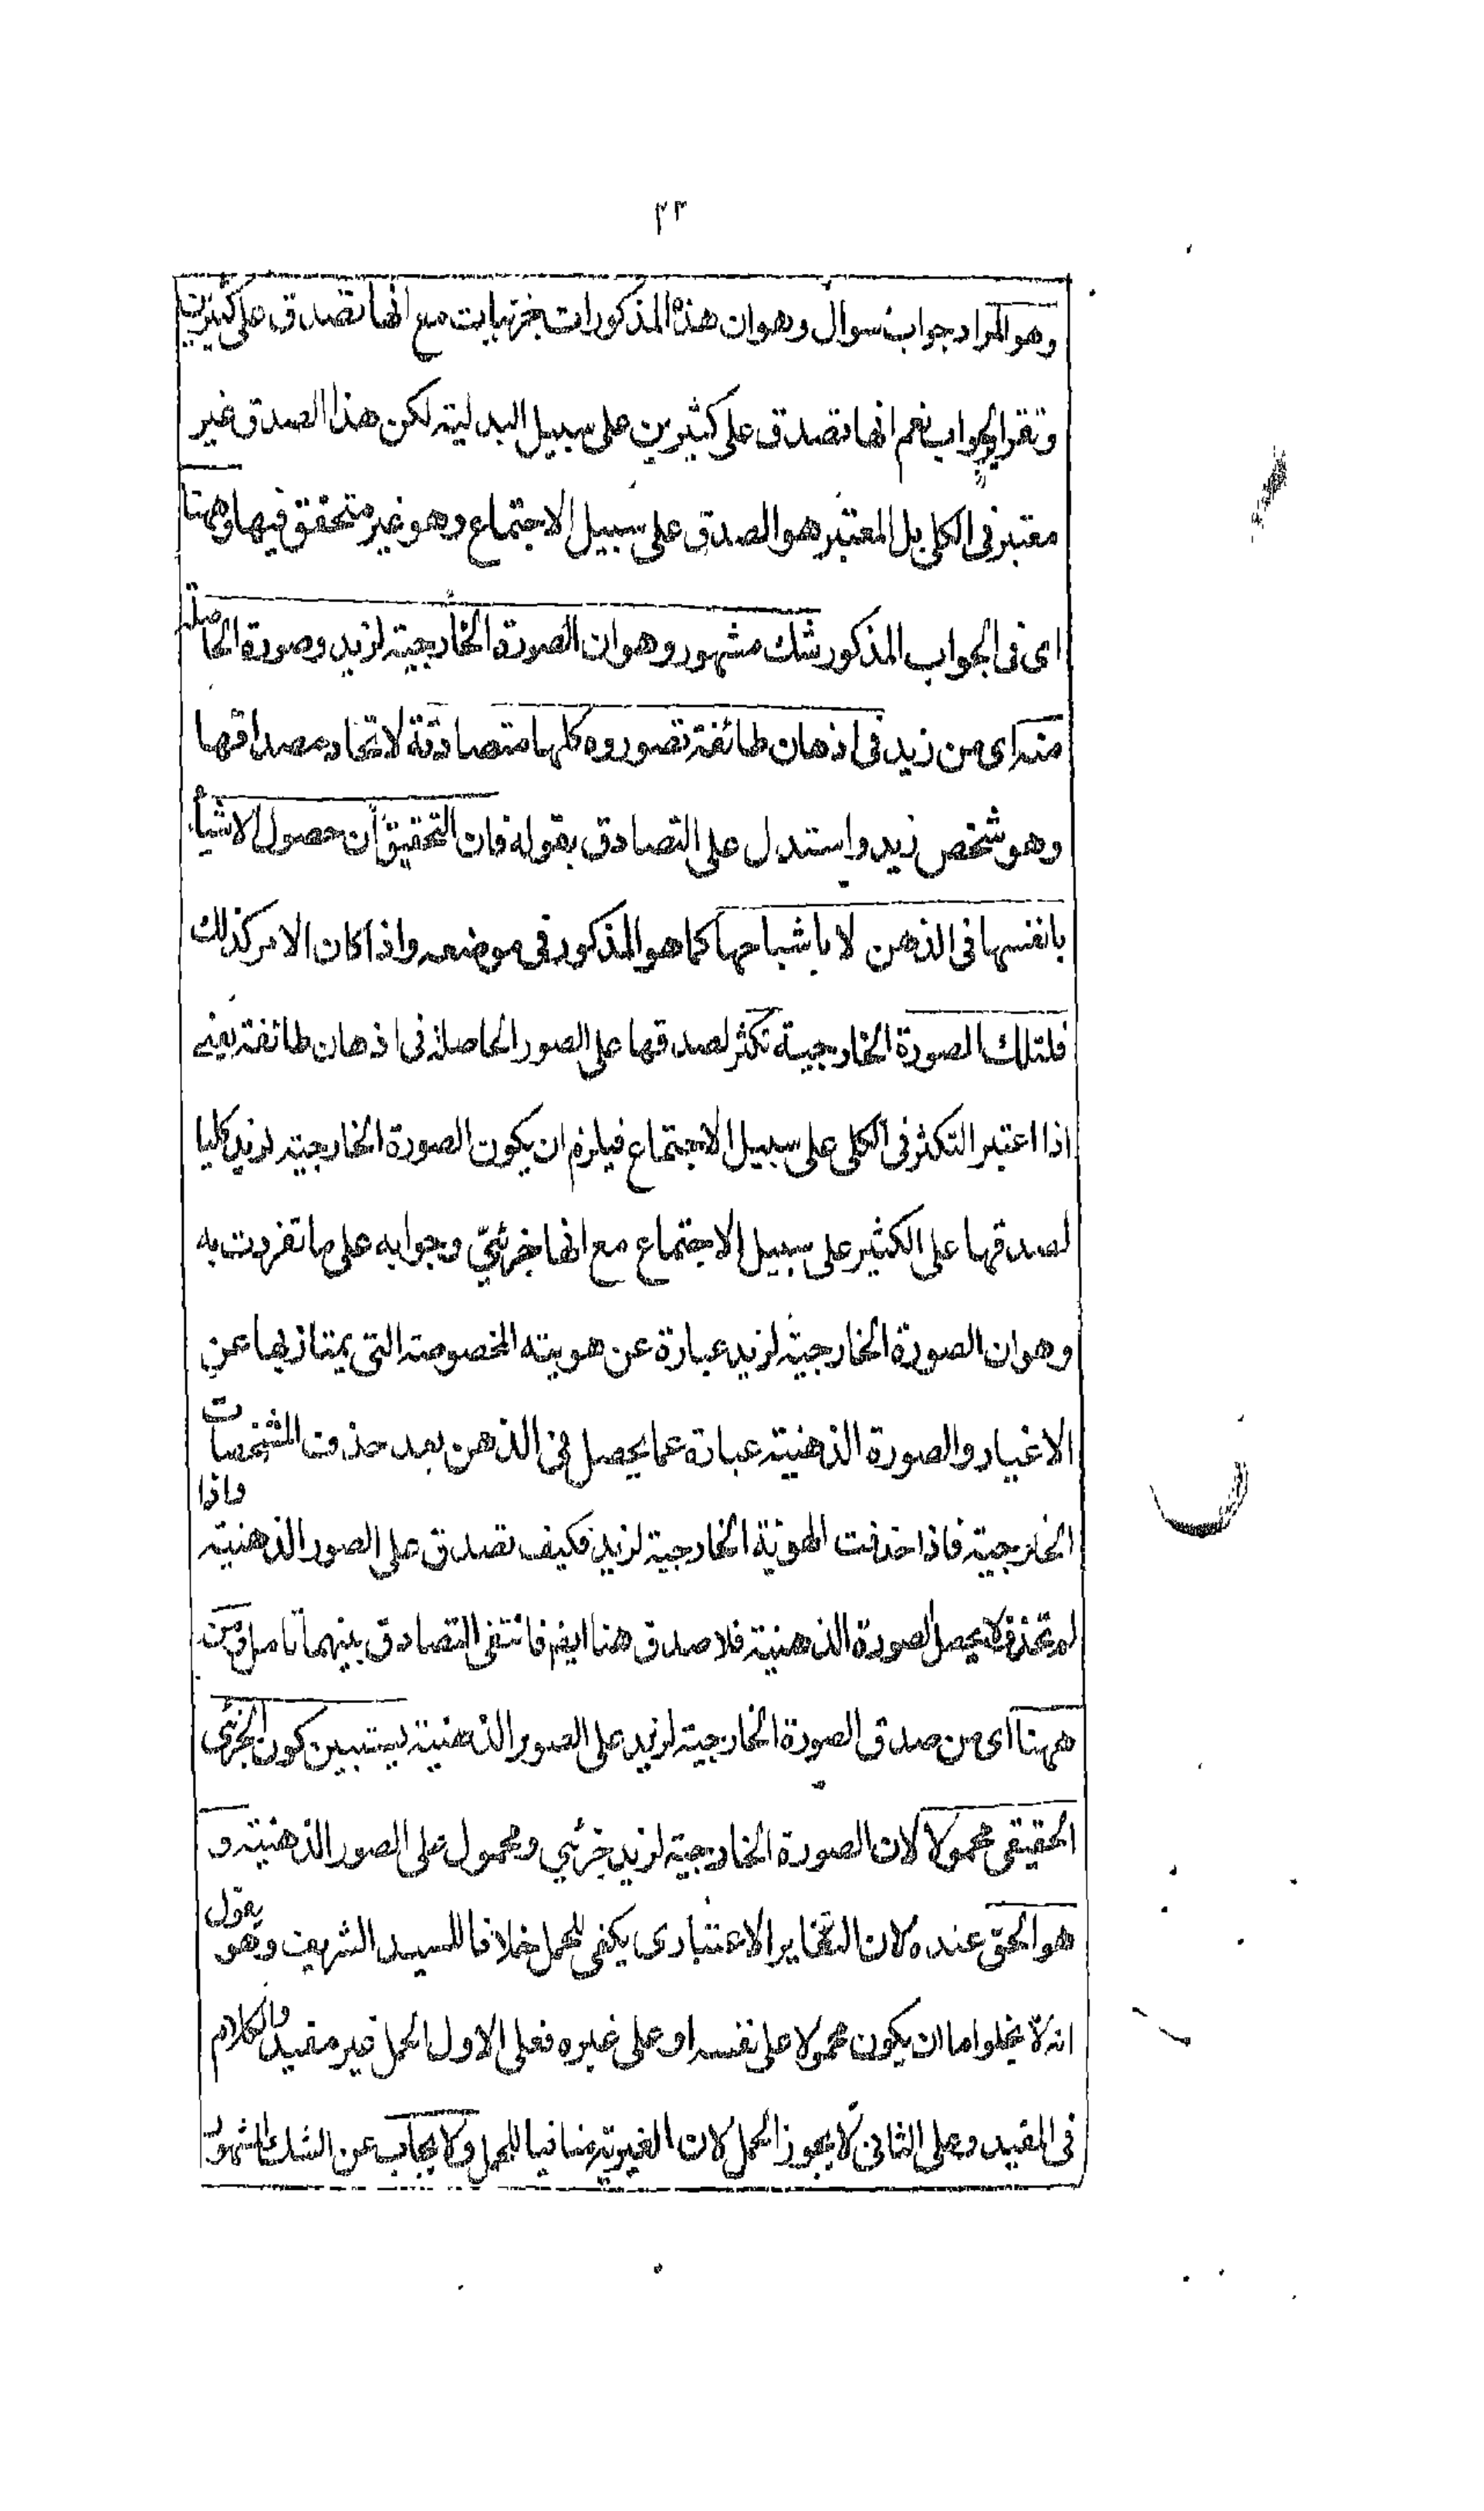 ٢٣
وهو المراد جواب سوال وهو ان هذه المذكورات بجزئيات مع انها تصدق على كثيرين
وتقرير الجواب نعم انها تصدق على كثيرين على سبيل البدلية لكن هذا الصدق غير
معتبر فى الكلى بل المعتبر هو الصدق على سبيل الاجتماع وهو غير متحقق فيها وههنا
اى فى الجواب المذكور شك مشهور وهو ان الصورة الخارجية لزيد وصورة الحاصلة
منه اى من زيد فى اذهان طائفة تصوروه كلها متصادقة لاتحاد مصداقها
وهو شخص زيد واستدل على التصادق بقوله فان التحقيق ان حصول الاشيأ
بانفسها فى الذهن لا باشباحها كما هو المذكور فى موضعه واذا كان الامر كذلك
فلتلك الصورة الخارجية تكثر لصدقها على الصور الحاصلة فى اذهان طائفة يعنى
اذا اعتبر التكثر فى الكلى على سبيل الاجتماع فيلزم ان يكون الصورة الخارجية لزيد كليا
لصدقها على الكثير على سبيل الاجتماع مع انها جزئى وجوابه على ما تفردت به
وهو ان الصورة الخارجية لزيد عبارة عن هويته المخصوصة التى يمتاز بها عن
الاغيار والصورة الذهنية عبارة عما يحصل فى الذهن بعد حذف المشخصات
الخارجية فاذا حذفت الهوية الخارجية لزيد فكيف تصدق على الصور الذهنية واذا
لم تحذف لا يحصل الصورة الذهنية فلا صدق هنا ايضم فانتفى التصادق بينهما تامل ومن
ههنا اى من صدق الصورة الخارجية لزيد على الصور الذهنية يستبين كون الجزئى
الحقيقى محمولا لان الصورة الخارجية لزيد جزئى ومحمول على الصور الذهنية و
هو الحق عنده لان التغاير الاعتبارى يكفى للحمل خلافا للسيد الشريف وهو يقول
انه لا يخلوا ما ان يكون محمولا على نفسه او على غيره فعلى الاول الحمل غير مفيد والكلام
فى المفيد وعلى الثانى لا يجوز الحمل لان الغيرية منافيا للحمل ولا يجاب عن الشك المشهور